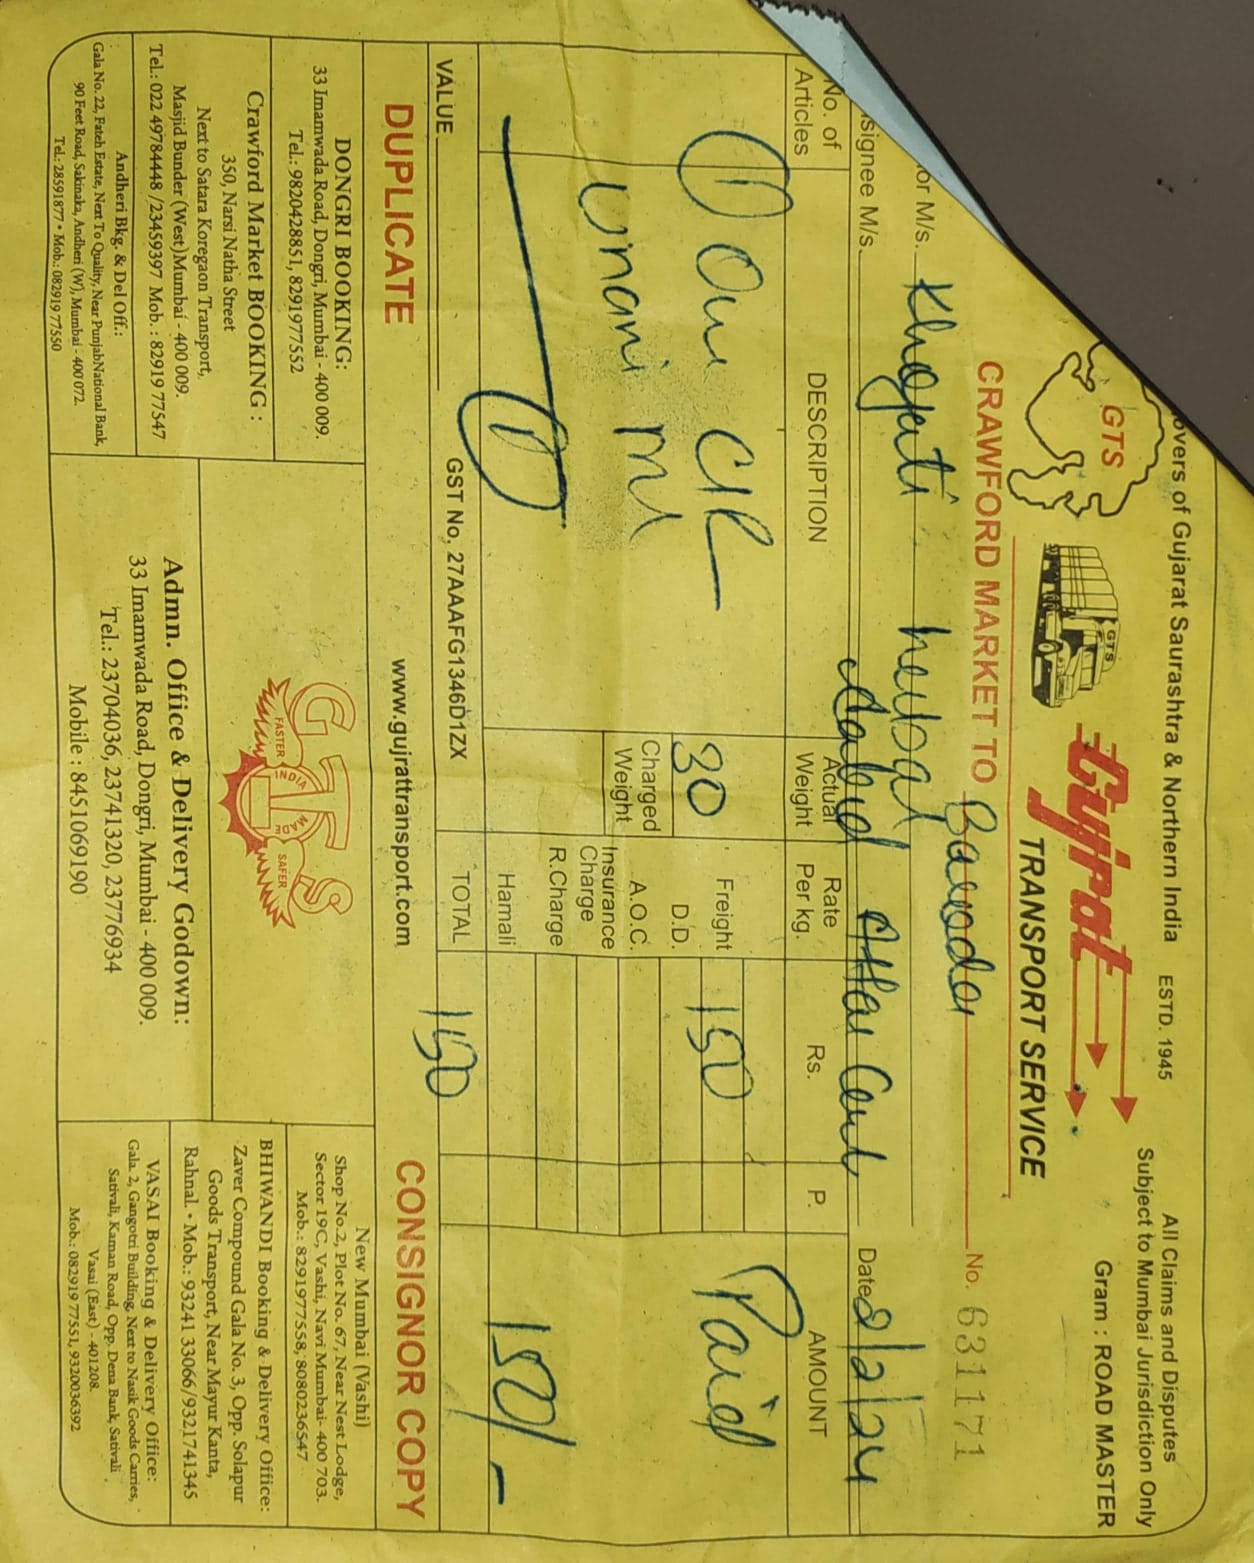 overs of Gujarat Saurashtra & Northern India ESTD. 1945
All Claims and Disputes
Subject to Mumbai Jurisdiction Only
Gram : ROAD MASTER
GTS
GTS
Gujrat
TRANSPORT SERVICE
CRAWFORD MARKET TO Baroda No. 631171
or M/s. Khojati herbal
signee M/s. Attar Date 8/2/24
No. of Articles DESCRIPTION Actual Weight Rate Per kg. Rs. P. AMOUNT
1 One
Unani
30 Freight 150 Paid
D.D.
Charged Weight A.O.C.
Insurance Charge
R.Charge
Hamali 150/-
VALUE GST No. 27AAAFG1346D1ZX TOTAL 150
DUPLICATE www.gujrattransport.com CONSIGNOR COPY
DONGRI BOOKING:
33 Imamwada Road, Dongri, Mumbai - 400 009.
Tel.: 9820428851, 8291977552
Crawford Market BOOKING :
350, Narsi Natha Street
Next to Satara Koregaon Transport,
Masjid Bunder (West)Mumbai - 400 009.
Tel.: 022 49784448 /23459397 Mob. : 82919 77547
Andheri Bkg. & Del Off.:
Gala No. 22, Fateh Estate, Next To Quality, Near PunjabNational Bank,
90 Feet Road, Sakinaka, Andheri (W), Mumbai - 400 072.
Tel.: 28591877 • Mob.: 082919 77550
GTS
FASTER INDIA MADE SAFER
Admn. Office & Delivery Godown:
33 Imamwada Road, Dongri, Mumbai - 400 009.
Tel.: 23704036, 23741320, 23776934
Mobile : 8451069190
New Mumbai (Vashi)
Shop No.2, Plot No. 67, Near Nest Lodge,
Sector 19C, Vashi, Navi Mumbai- 400 703.
Mob.: 8291977558, 8080236547
BHIWANDI Booking & Delivery Office:
Zaver Compound Gala No. 3, Opp. Solapur
Goods Transport, Near Mayur Kanta,
Rahnal. • Mob.: 93241 33066/9321741345
VASAI Booking & Delivery Office:
Gala. 2, Gangotri Building, Next to Nasik Goods Carries,
Sativali, Kaman Road, Opp. Dena Bank, Sativali
Vasai (East) - 401208.
Mob.: 082919 77551, 9320036392